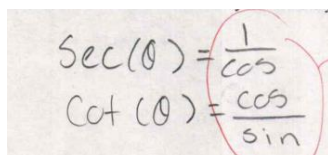 Sec(θ) = 1/cos
Cot(θ) = cos/sin